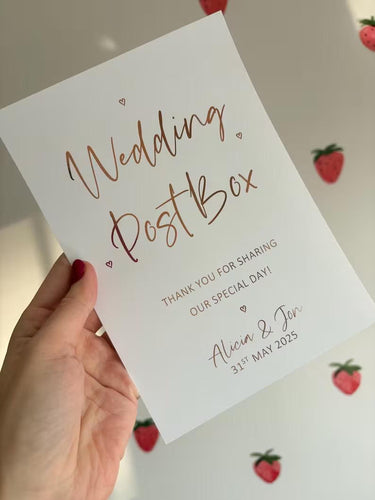 Wedding
Post Box
THANK YOU FOR SHARING
OUR SPECIAL DAY!
Alicia & Jon
31ST MAY 2025